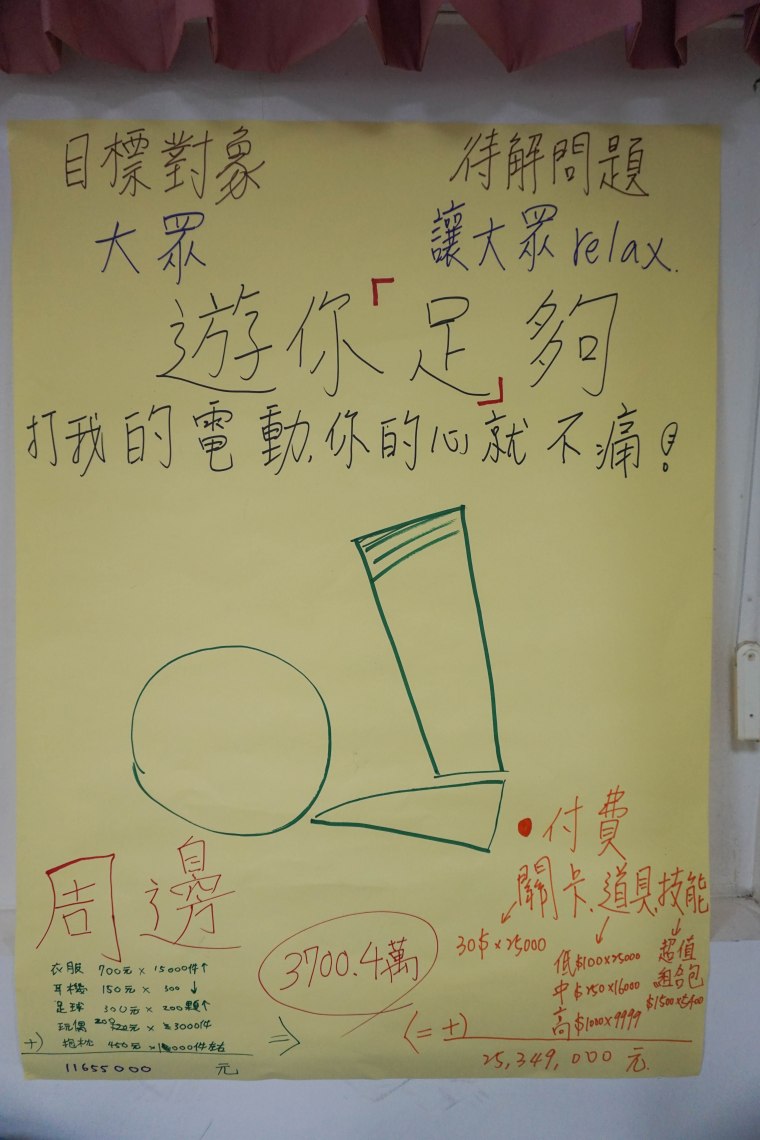 目標對象
待解問題
大眾
讓大眾 relax.
遊你「足」夠
打我的電動,你的心就不痛!
周邊
衣服 700元 × 15000件↑
耳機 150元 × 300 ↓
足球 300元 × 200顆↑
玩偶
3000件
+) 抱枕 450元
000件左右
11655000 元
⇒
3700.4萬
• 付費
關卡、道具、技能
30$ × 25000
低 $100×25000
中 $250×16000
高 $1000×9999
超值
組合包
(= +)
25,349,000 元.